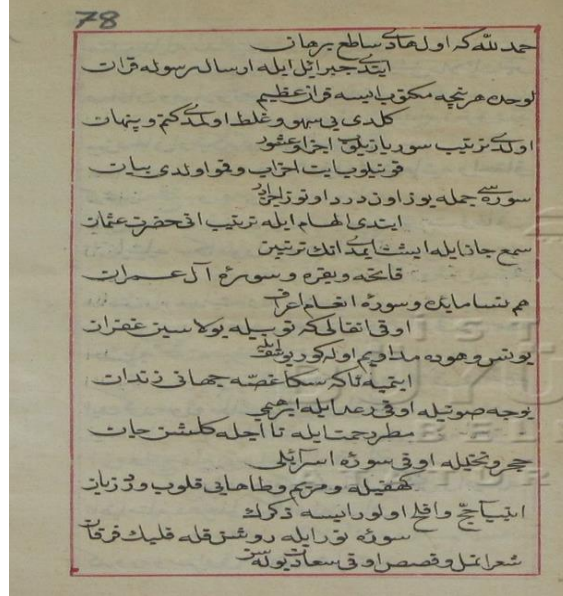 78
حمد لله كه اول هادئ ساطع برهان
ايتدى جبرائيل ايله ارسال رسوله قرآن
لوحده هر نيجه مكتوب ايسه قرآن عظيم
كلدى بى سهو و غلط اولمدى كتم و پنهان
اولدى ترتيب سور يازيلوب اجزا و عشور
قونيلوب آيت احزاب و قو اولدى بيان
سوره سى جمله يوز اون درد اوتوز اجزادر
ايتدى الهام ايله ترتيب انى حضرت عثمان
سمع جانايله ايشت ايمدى انك ترتيبن
فاتحه و بقره و سورۀ آل عمران
هم نسا مايده و سورۀ انعام اعراف
اوقى انفالى كه توبيله بولاسين غفران
يونس و هوده مداويم اوله كور يوسفيله
ايتميه تاكه سكا غصه جهانى زندان
يوجه صوتيله اوقى رعد ايله ابرهيمى
مطر رحمت ايله تا آچيله كلشن جان
حجر و نحليله اوقى سورۀ اسرائيلى
كهفيله و مريم و طاهايى قلوب ورد زبان
انبيا حج و افلح اولور ايسه ذكرك
سورۀ نور ايله روشن قله قلبك فرقان
شعرا نمل و قصص اوقى سعادت بوله سن
IST
BÜYÜ
BELED
ATATÜR